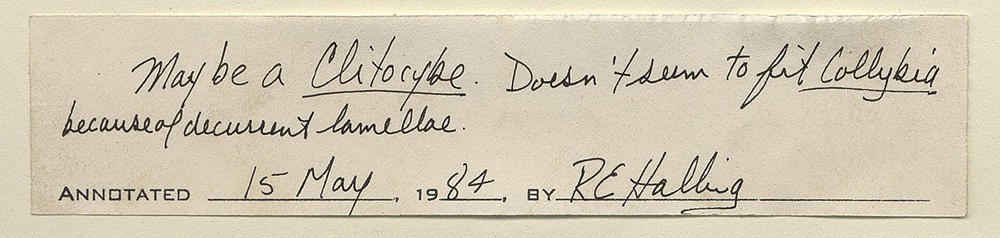 Maybe a Clitocybe. Doesn't seem to fit Collybia
because of decurrent lamellae.
ANNOTATED 15 May, 1984, BY RE Halling